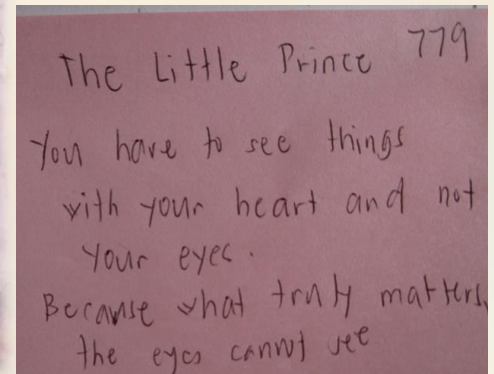 The Little Prince 779
You have to see things
with your heart and not
your eyes.
Because what truly matters,
the eyes cannot see